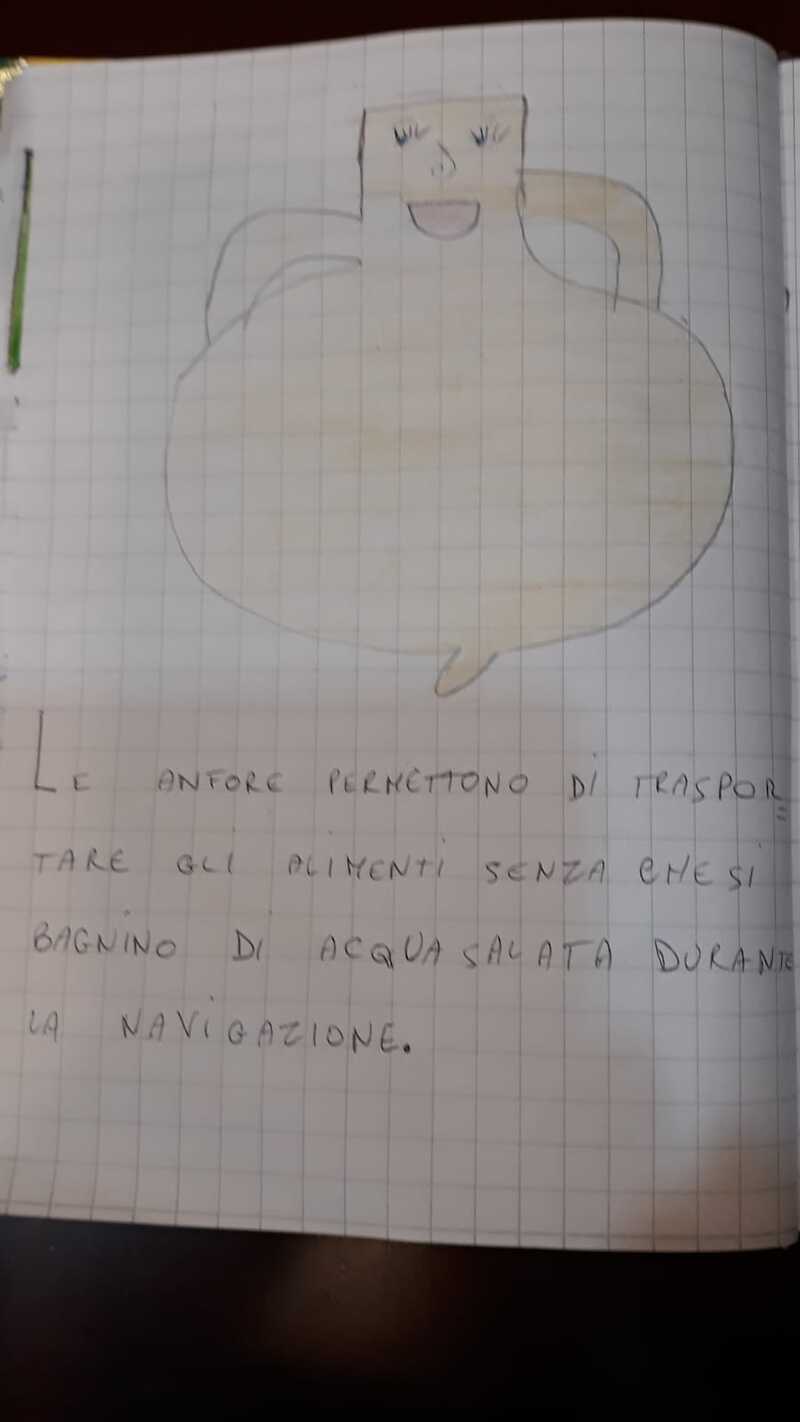 LE ANFORE PERMETTONO DI TRASPOR=
TARE GLI ALIMENTI SENZA CHE SI
BAGNINO DI ACQUA SALATA DURANTE
LA NAVIGAZIONE.